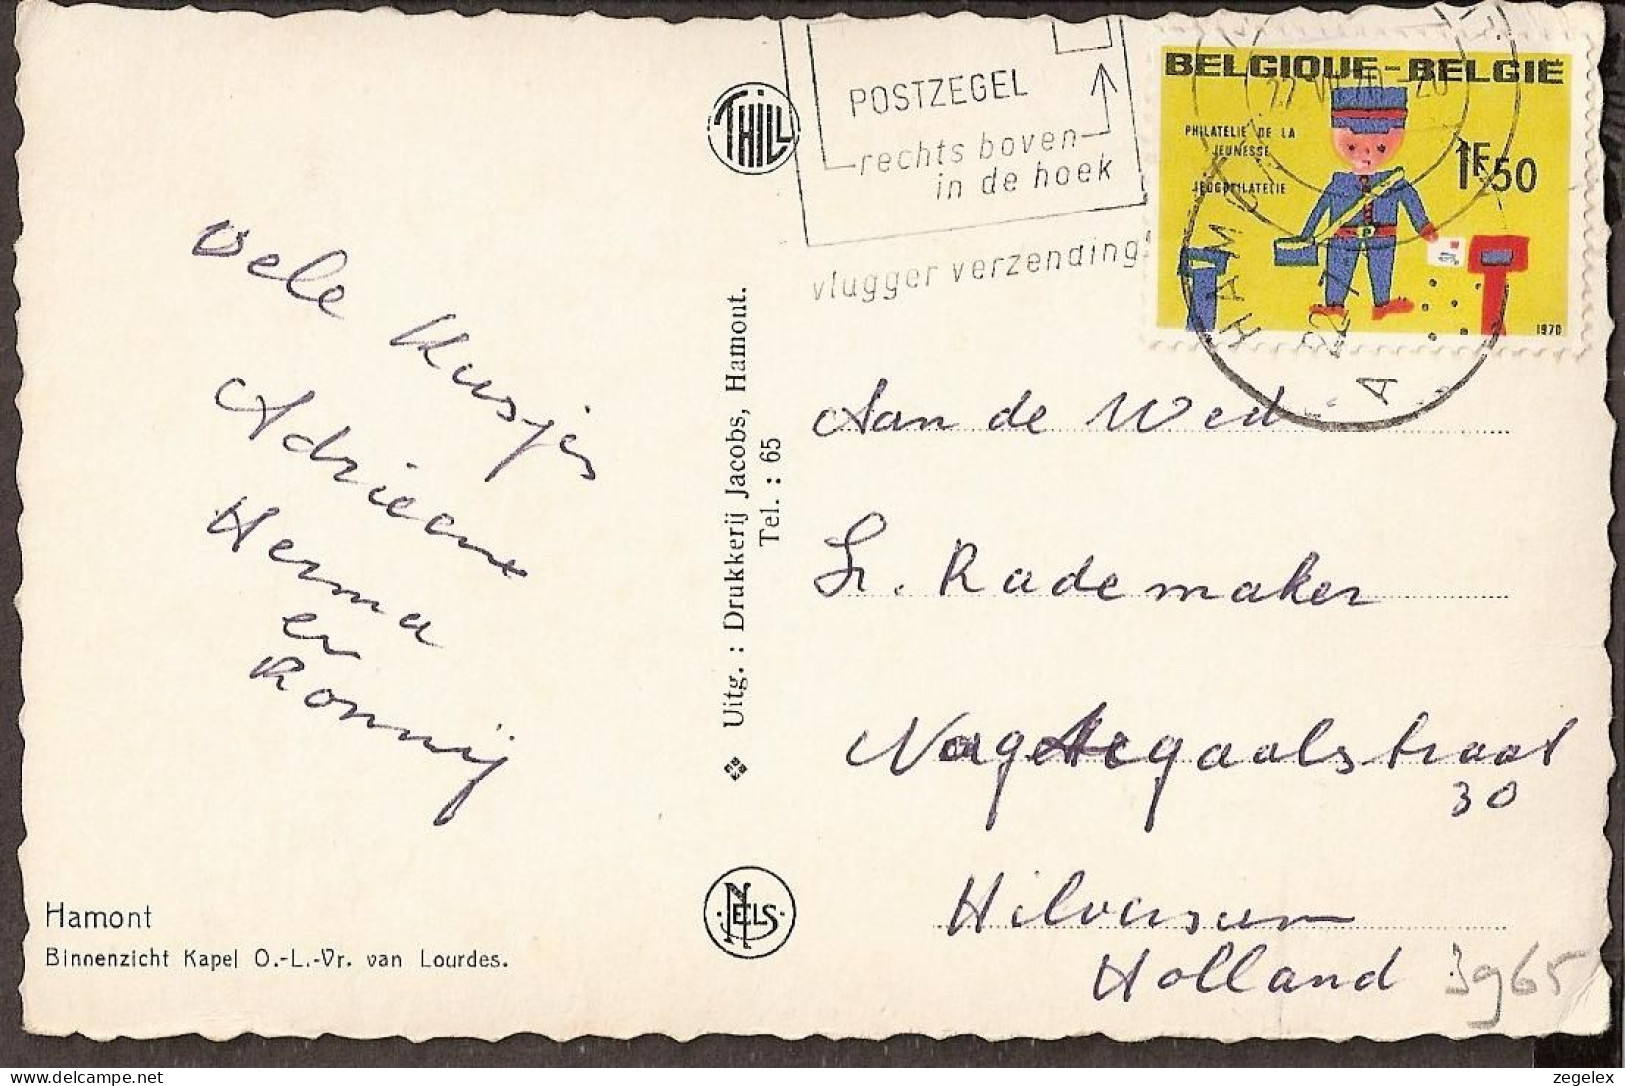 POSTZEGEL
rechts boven
in de hoek
vlugger verzending!
BELGIQUE-BELGIË
PHILATELIE DE LA
JEUNESSE
JEUGDFILATELIE
1F50
1970
HAMONT
A
THILL
Vele Kusjes
Adriean
Herma
en
Ronnij
Uitg. : Drukkerij Jacobs, Hamont.
Tel. : 65
Aan de Wed
Rademaker
30
Hilversum
Holland
3965
NELS
Hamont
Binnenzicht Kapel O.-L.-Vr. van Lourdes.
zegelex